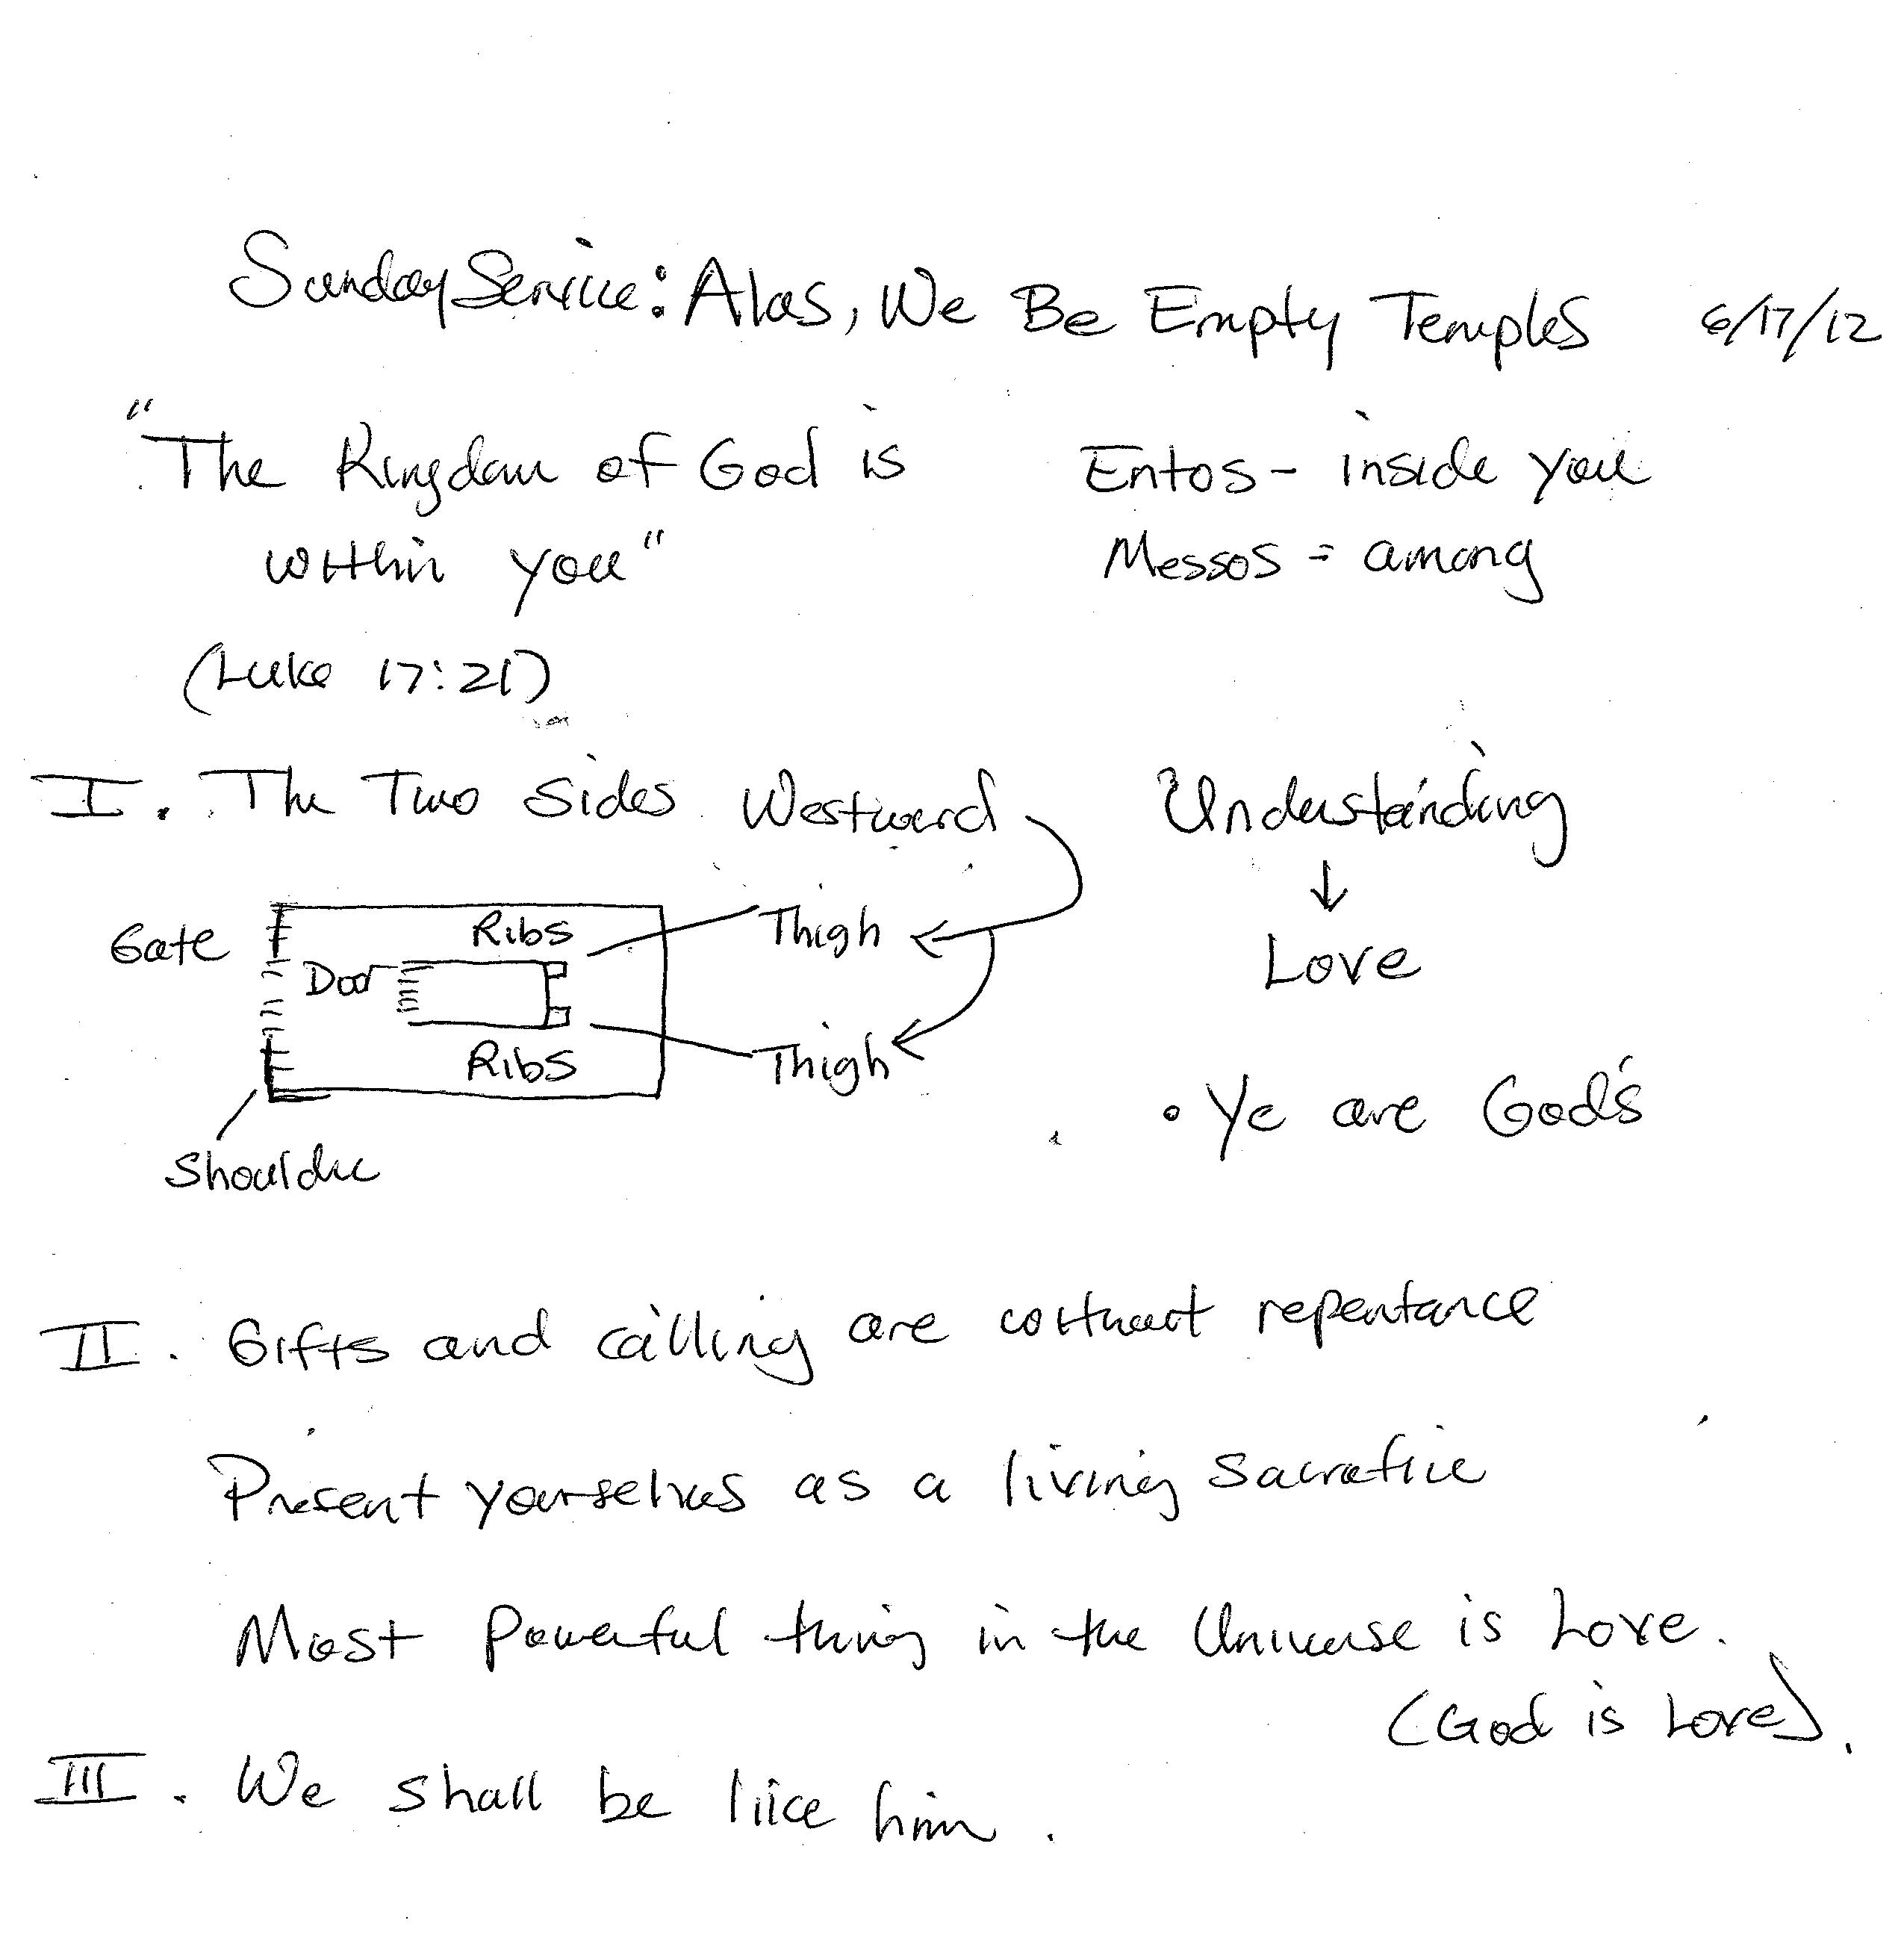 Sunday Service: Alas, We Be Empty Temples 6/17/12
"The Kingdom of God is
within you"
(Luke 17:21)
Entos - inside you
Messos - among
I. The Two Sides Westward
Understanding
↓
Love
Gate
Ribs
Thigh
Door
Ribs
Thigh
Shoulder
• Ye are God's
II. Gifts and calling are without repentance
Present yourselves as a living sacrafice
Most powerful thing in the Universe is Love.
(God is Love).
III. We shall be like him.